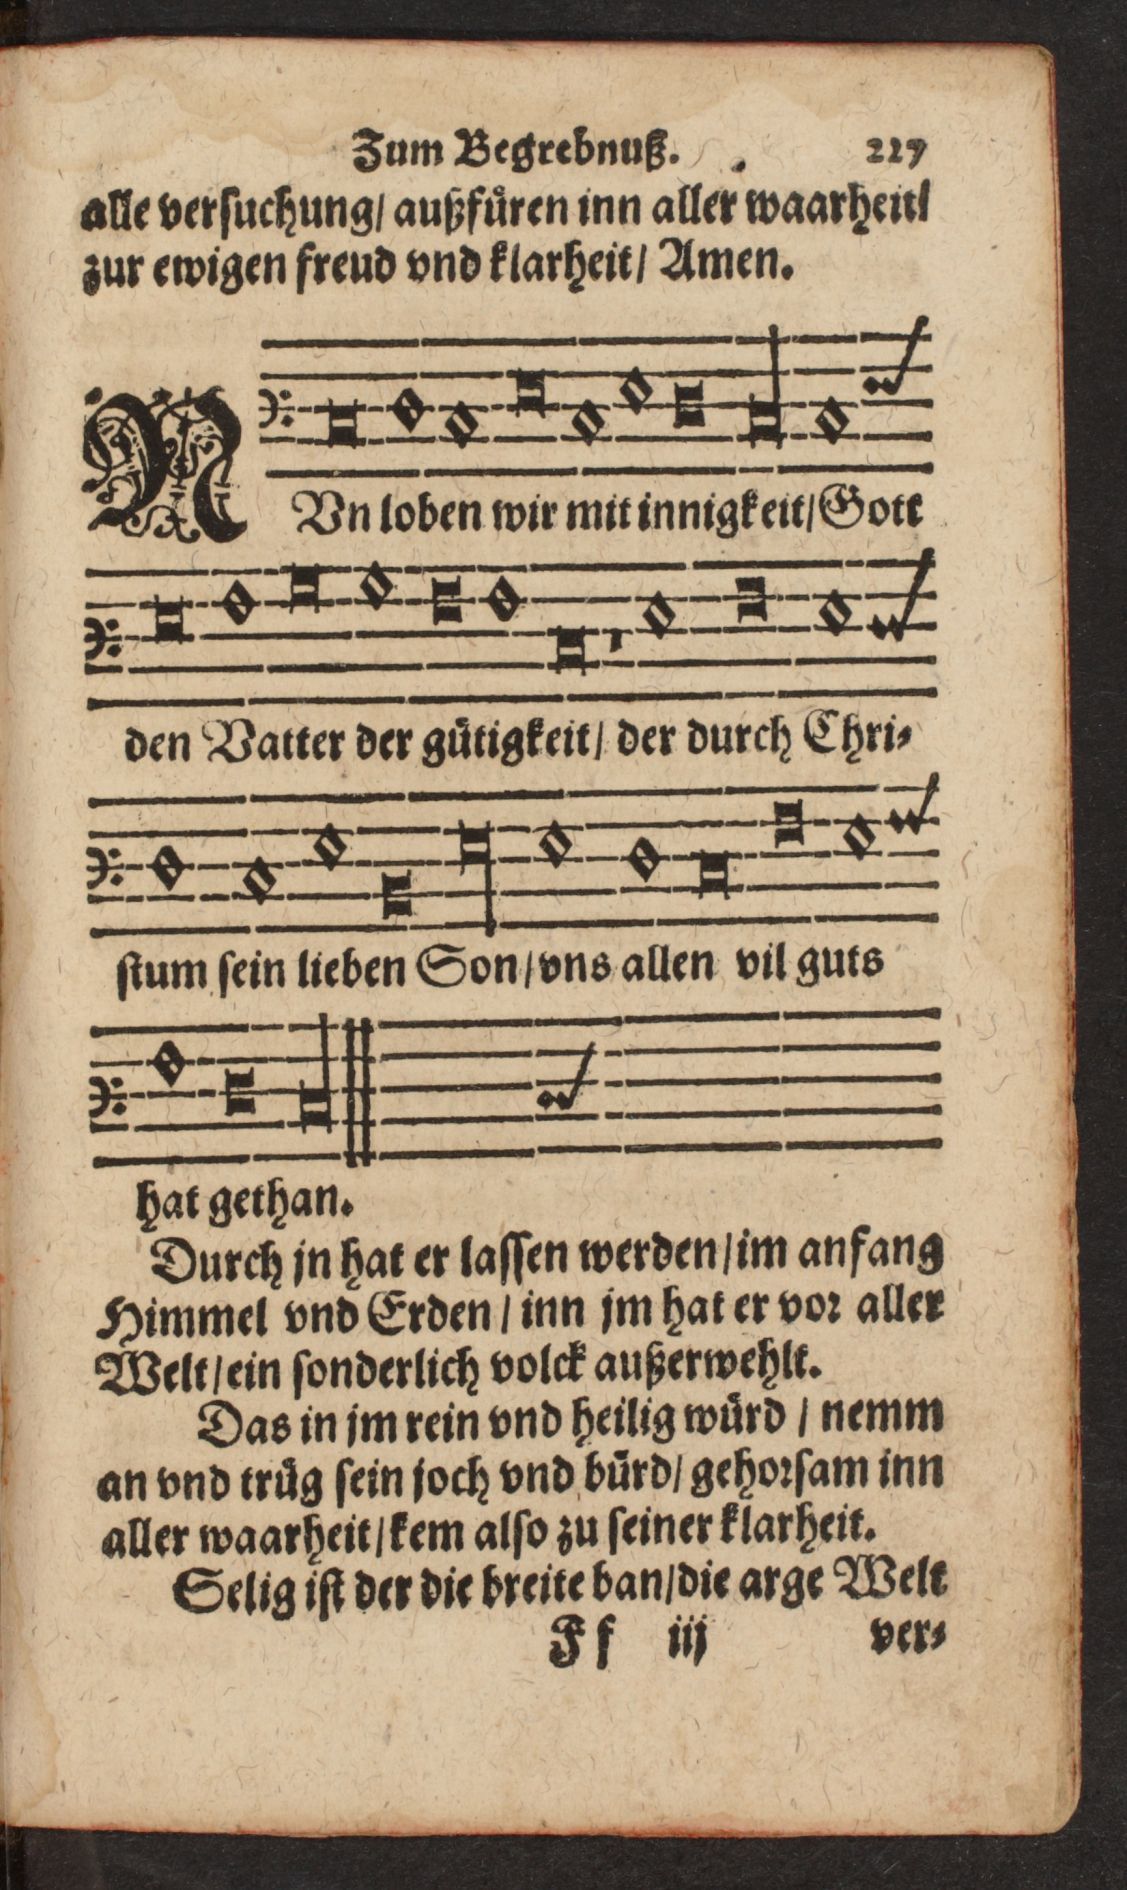 Zum Begrebnuß. 227
alle versuchung/ außfüren inn aller waarheit/
zur ewigen freud vnd klarheit/ Amen.
NVn loben wir mit innigkeit/ Gott
den Vatter der gütigkeit/ der durch Chri-
stum sein lieben Son/ vns allen vil guts
hat gethan.
Durch jn hat er lassen werden/ im anfang
Himmel vnd Erden/ inn jm hat er vor aller
Welt/ ein sonderlich volck außerwehlt.
Das in jm rein vnd heilig würd/ nemm
an vnd trüg sein joch vnd bürd/ gehorsam inn
aller waarheit/ kem also zu seiner klarheit.
Selig ist der die breite ban/ die arge Welt
Ff iij ver-